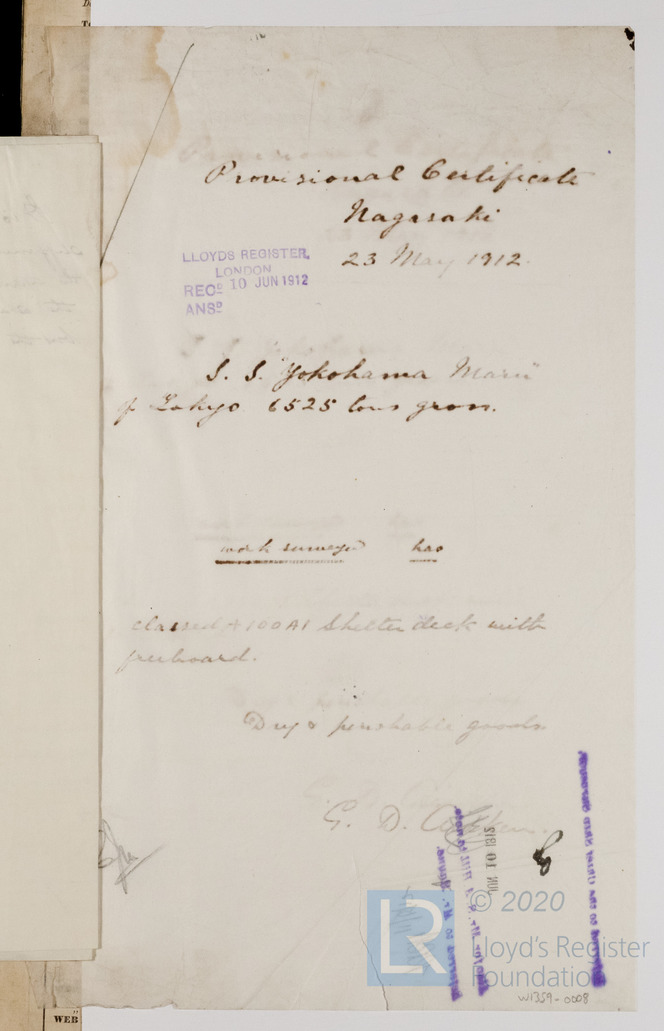 Provisional Certificate
Nagasaki
23 May 1912.
LLOYDS REGISTER,
LONDON
RECD 10 JUN 1912
ANSD
S. S. "Yokohama Maru"
of Tokyo 6525 tons gross.
work surveyed has
classed +100A1 Shelter deck with
freeboard.
Dry & perishable goods
G. D.
JUN 10 1912
LR
© 2020
Lloyd's Register
Foundation
W1359-0008
WEB